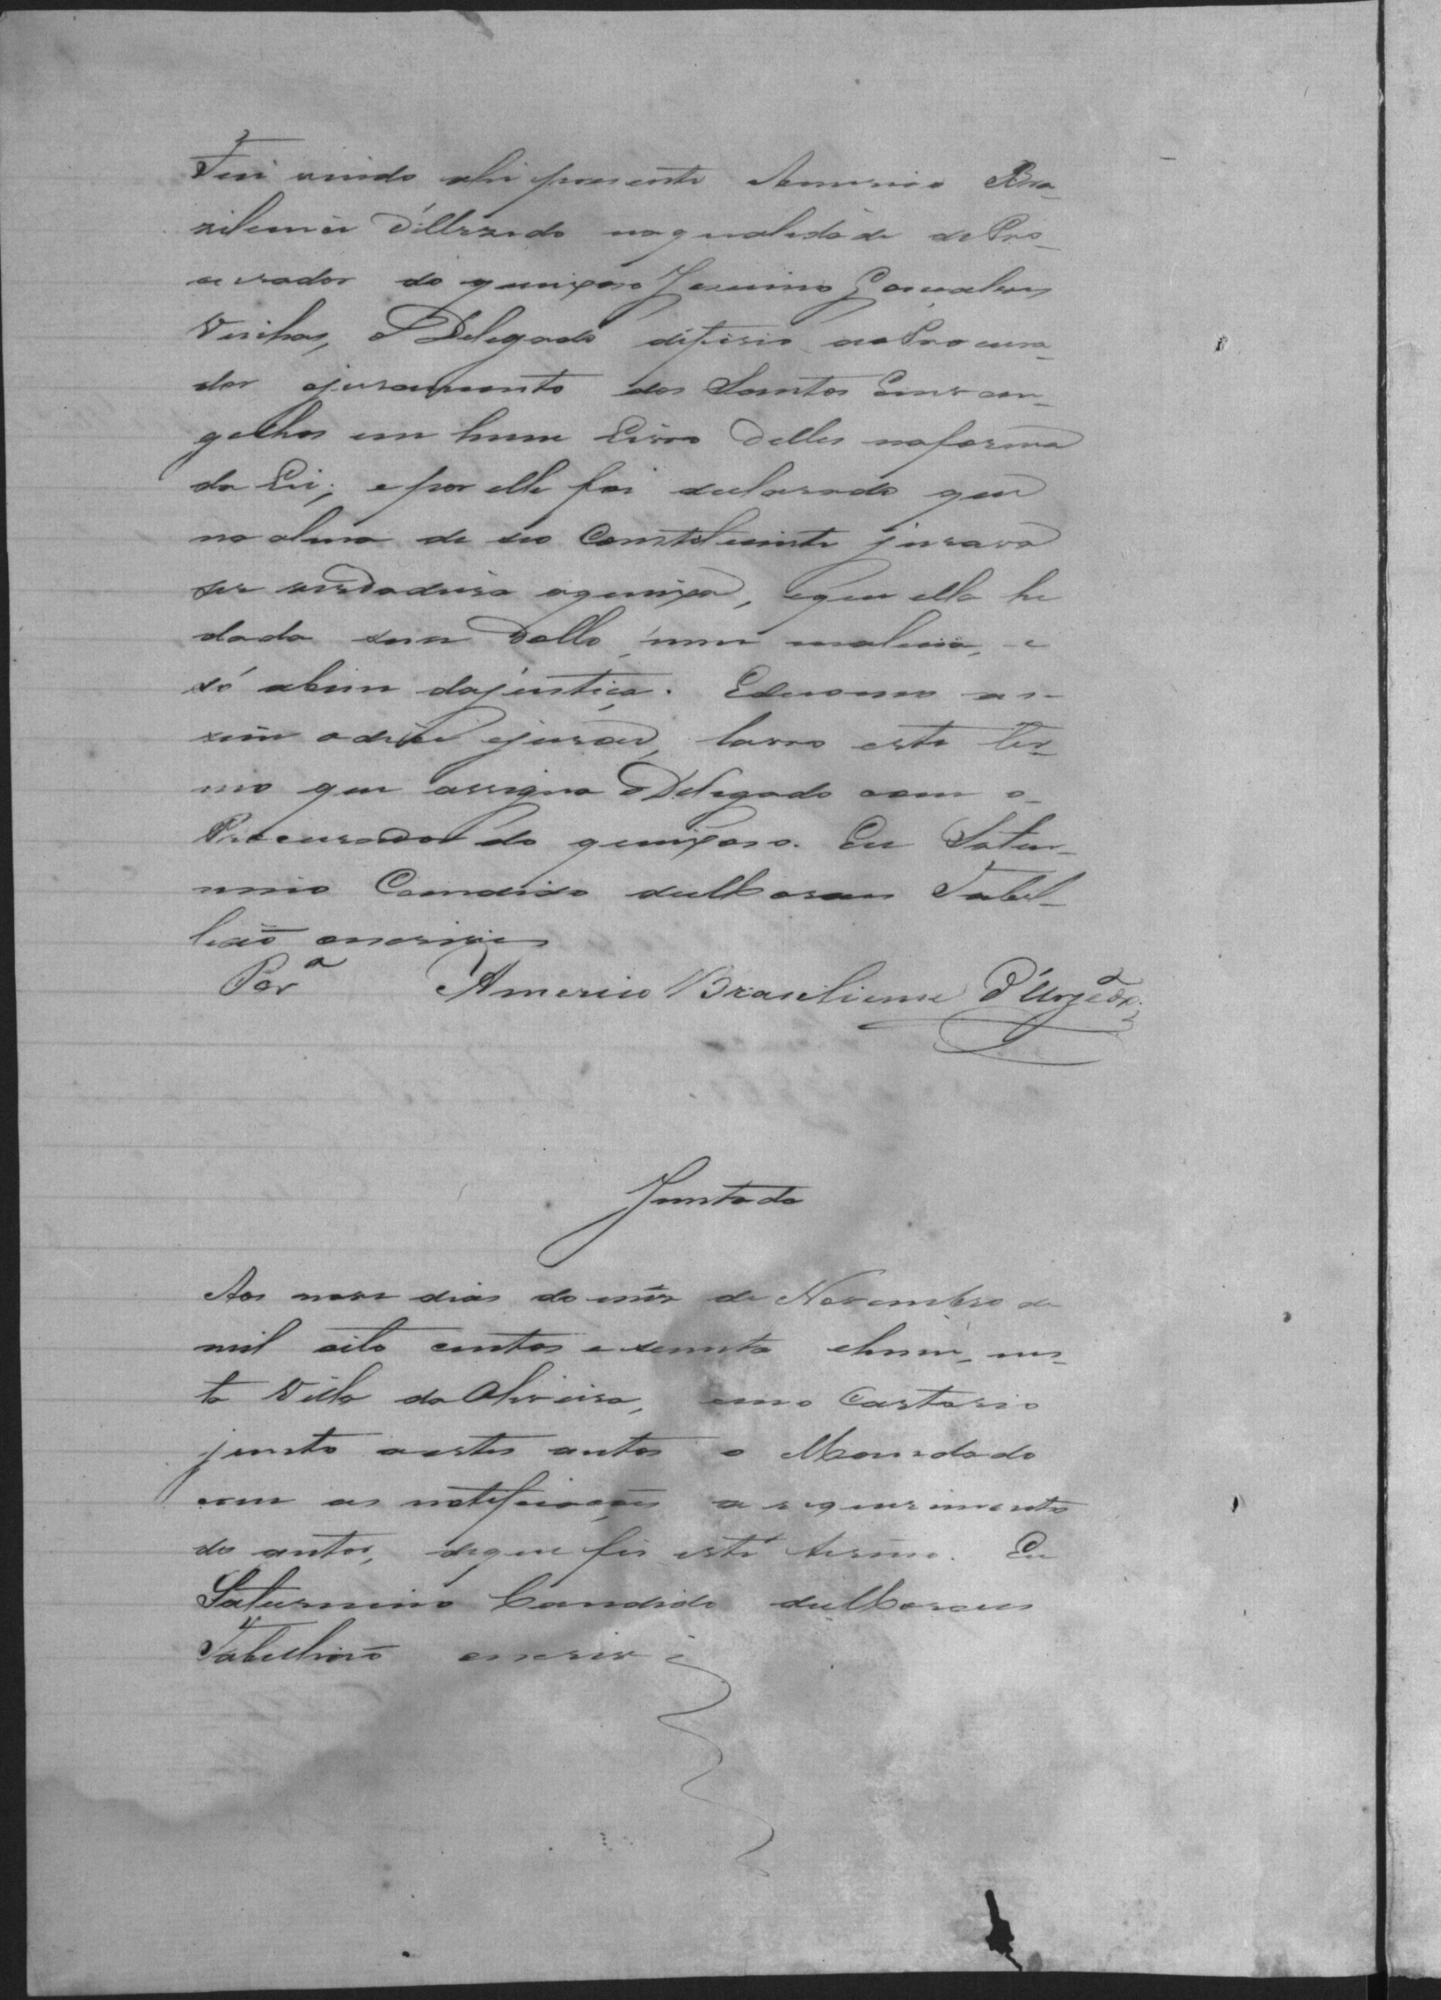 vindo ahi presente Americo Bra-
ziliense d'Urzedo na qualidade de Pro-
curador do queixoso Jesuino Gonçalves
o Delegado diferio ao Procura-
dor o juramento dos Santos Evan-
gelhos em hum Livro delles na forma
da Lei; e por elle foi declarado que
na alma de seo Constetuinte jurava
ser verdadeira a queixa, e que ella he
dada sem dollo nem malicia, e
só a bem da justiça. E de como as-
sim o disse e jurou, lavro este ter-
mo que assigna o Delegado com o
Procurador do queixoso. Eu Satur-
nino Candido de Moraes Tabel-
lião o escrivi
Per.a Americo Brasiliense d'Urzedo
Juntada
Aos nove dias do mês de Novembro de
mil oito centos e secenta e hum, nes-
ta Villa da Oliveira, em o Cartorio
junto a estes autos o Mandado
com as notificações a requerimento
do autor, de que fis este termo. Eu
Saturnino Candido de Moraes
Tabellião o escrivi